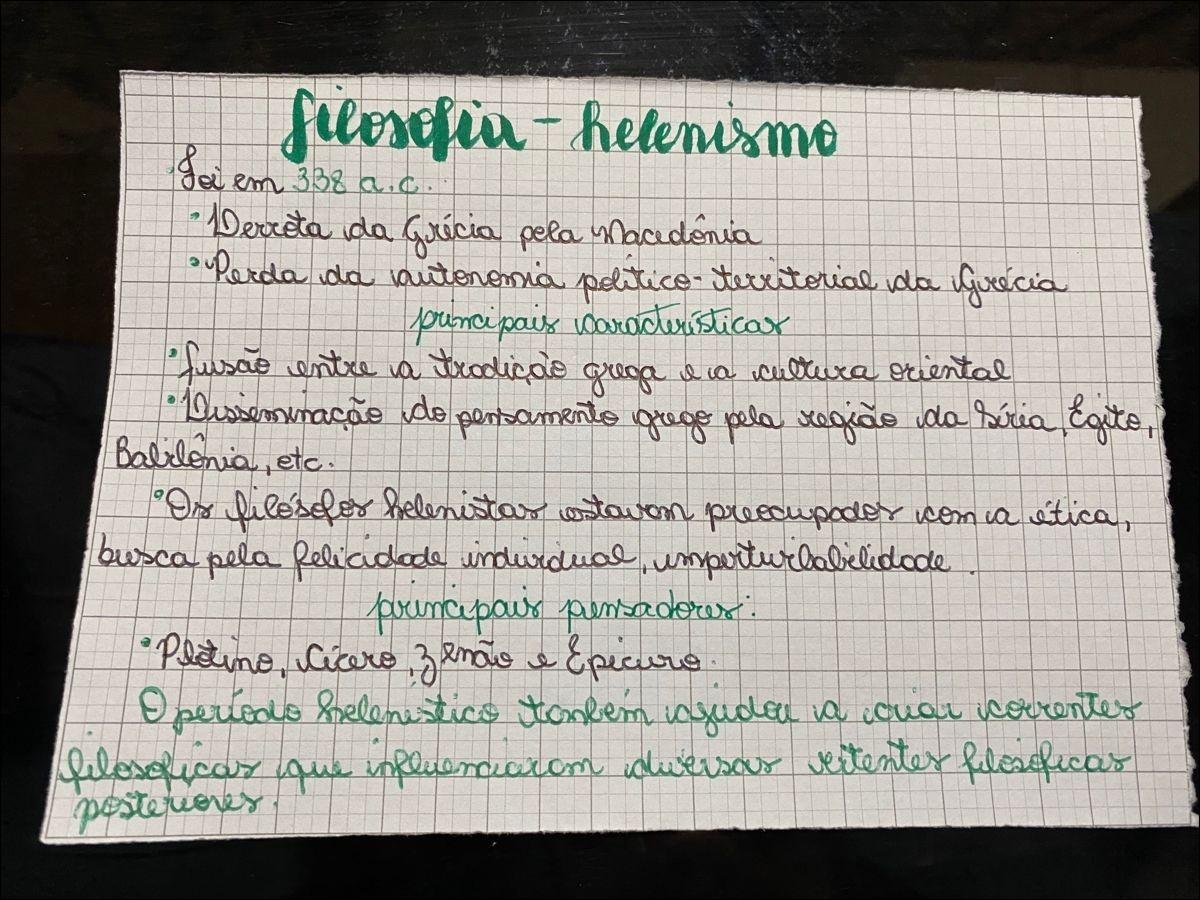 filosofia - helenismo
foi em 338 a.c.
• Derrota da Grécia pela Macedônia
• Perda da autonomia político-territorial da Grécia
principais características
• fusão entre a tradição grega e a cultura oriental
• Disseminação do pensamento grego pela região da Síria, Egito,
Babilônia, etc.
• Os filósofos helenistas estavam preocupados com a ética,
busca pela felicidade individual, imperturbabilidade.
principais pensadores:
• Plotino, Cícero, Zenão e Epicuro.
O período helenístico também ajudou a criar correntes
filosoficas que influenciaram diversas filosoficas
posteriores.